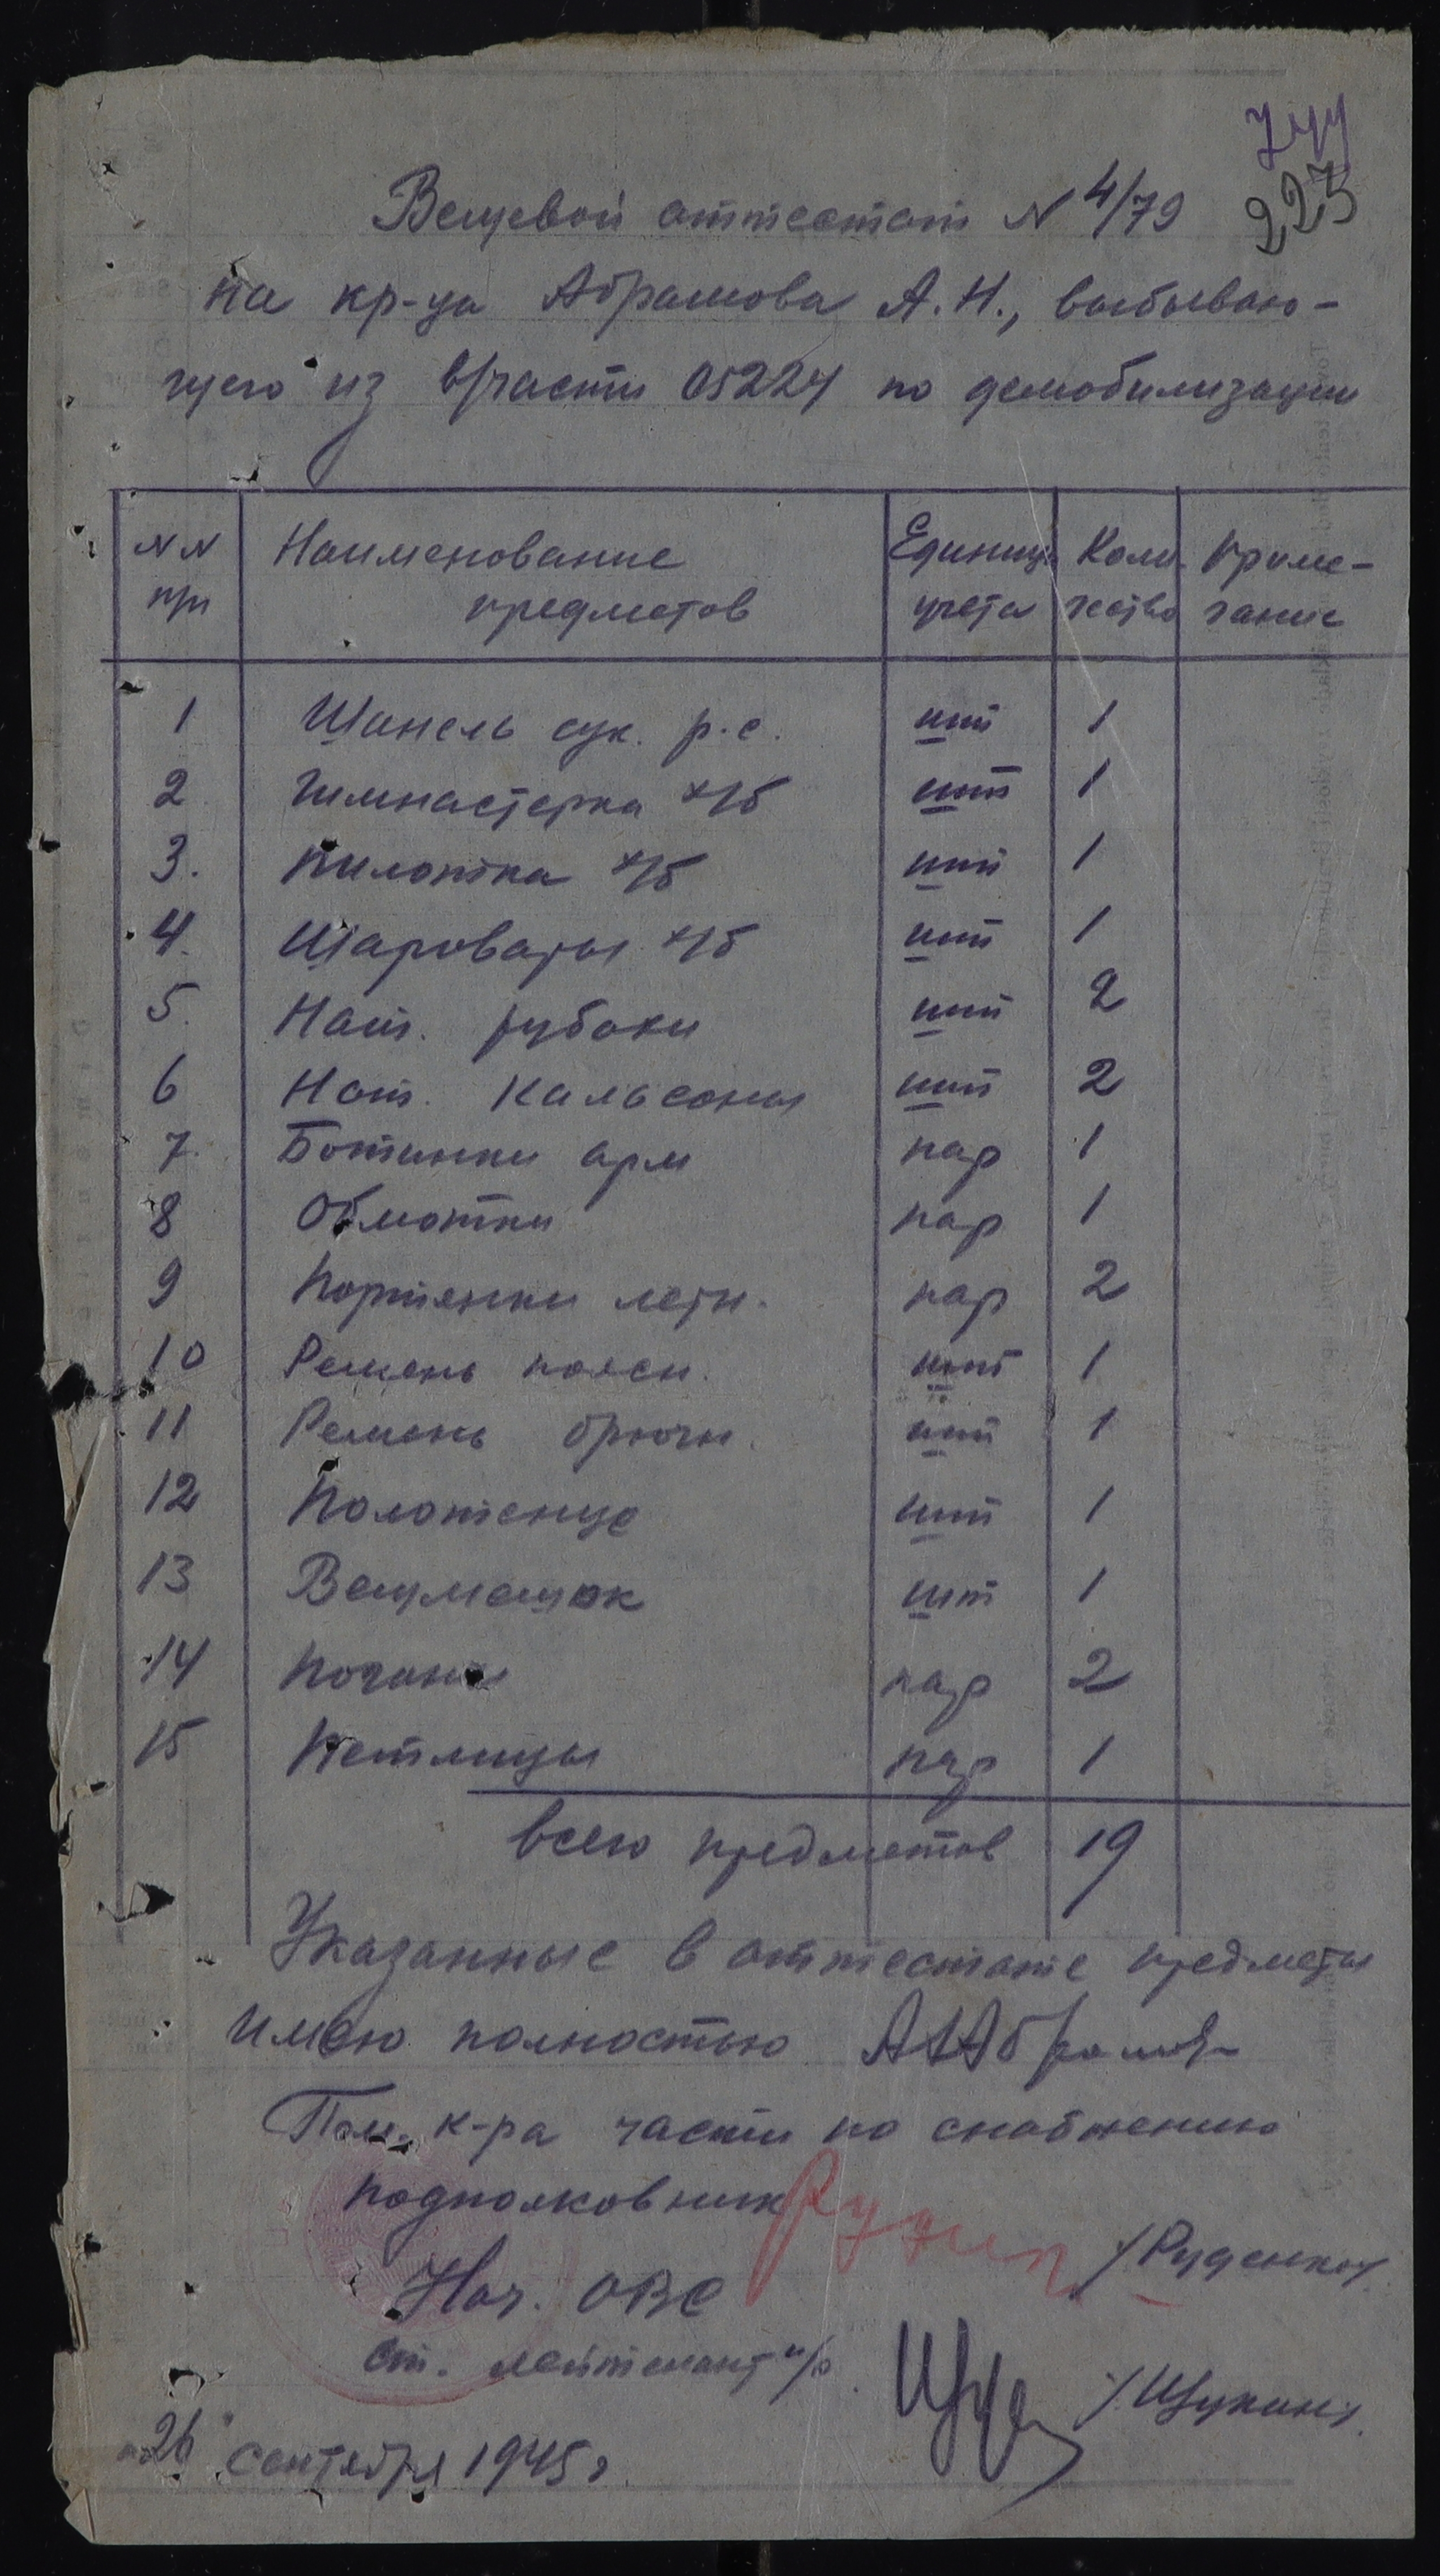 744
223
Вещевой аттестат N 4/79
на кр-ца Абрамова А.Н., выбываю-
щего из в/части 05224 по демобилизации
NN Наименование Единица Коли Приме-
п/п предметов учета чество чание
1 Шинель сук. р.с. шт 1
2 Гимнастерка х/б шт 1
3. Пилотка х/б шт 1
4. Шаровары х/б шт 1
5. Нат. рубахи шт 2
6 Нат. Кальсоны шт 2
7. Ботинки арм пар 1
8 Обмотки пар 1
9 Портянки летн. пар 2
10 Ремень поясн. шт 1
11 Ремень брючн. шт 1
12 Полотенце шт 1
13 Вещмешок шт 1
14 Погоны пар 2
15 Петлицы пар 1
всего предметов 19
Указанные в аттестате предметы
имею полностью Абрамов
Пом. к-ра части по снабжению
подполковник /Руденко/
Нач. ОВС
ст. лейтенант и/с /Щукин/
"26" сентября 1945г.